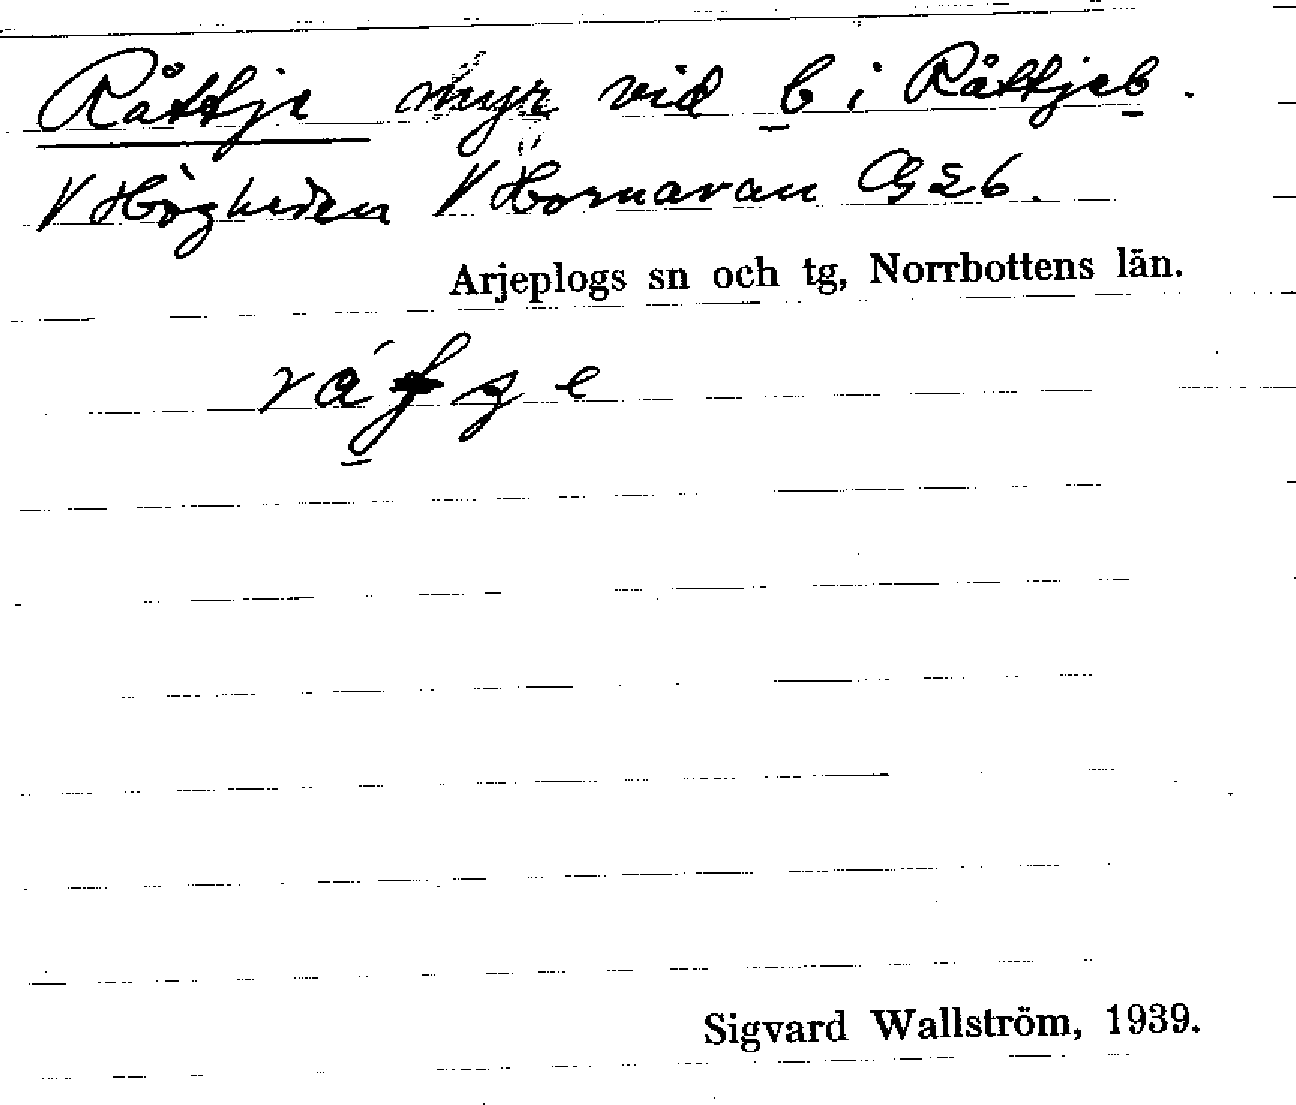 Råttje myr vid b i Råttjeb.
V Högheden V Hornavan G26.
Arjeplogs sn och tg, Norrbottens län.
Sigvard Wallström, 1939.